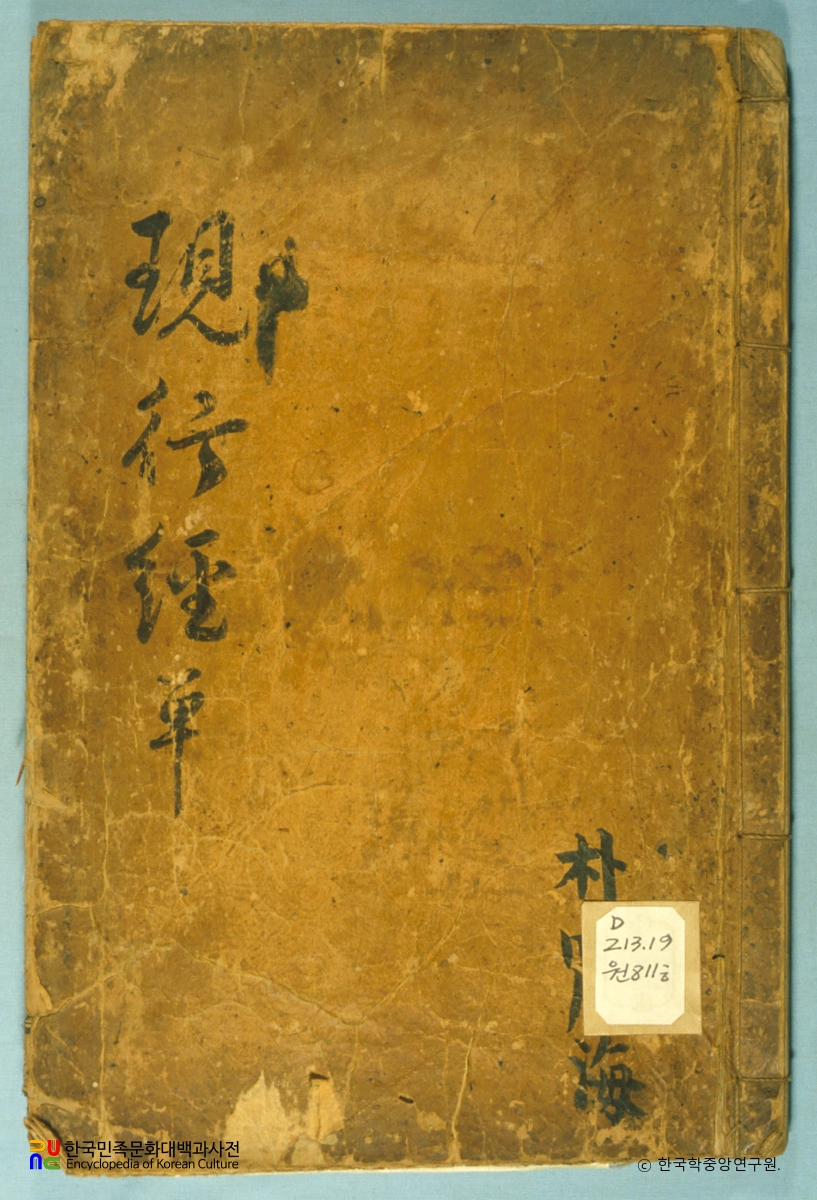 現行經單
朴
海
D
213.19
원811ㅎ
한국민족문화대백과사전
Encyclopedia of Korean Culture
© 한국학중앙연구원.